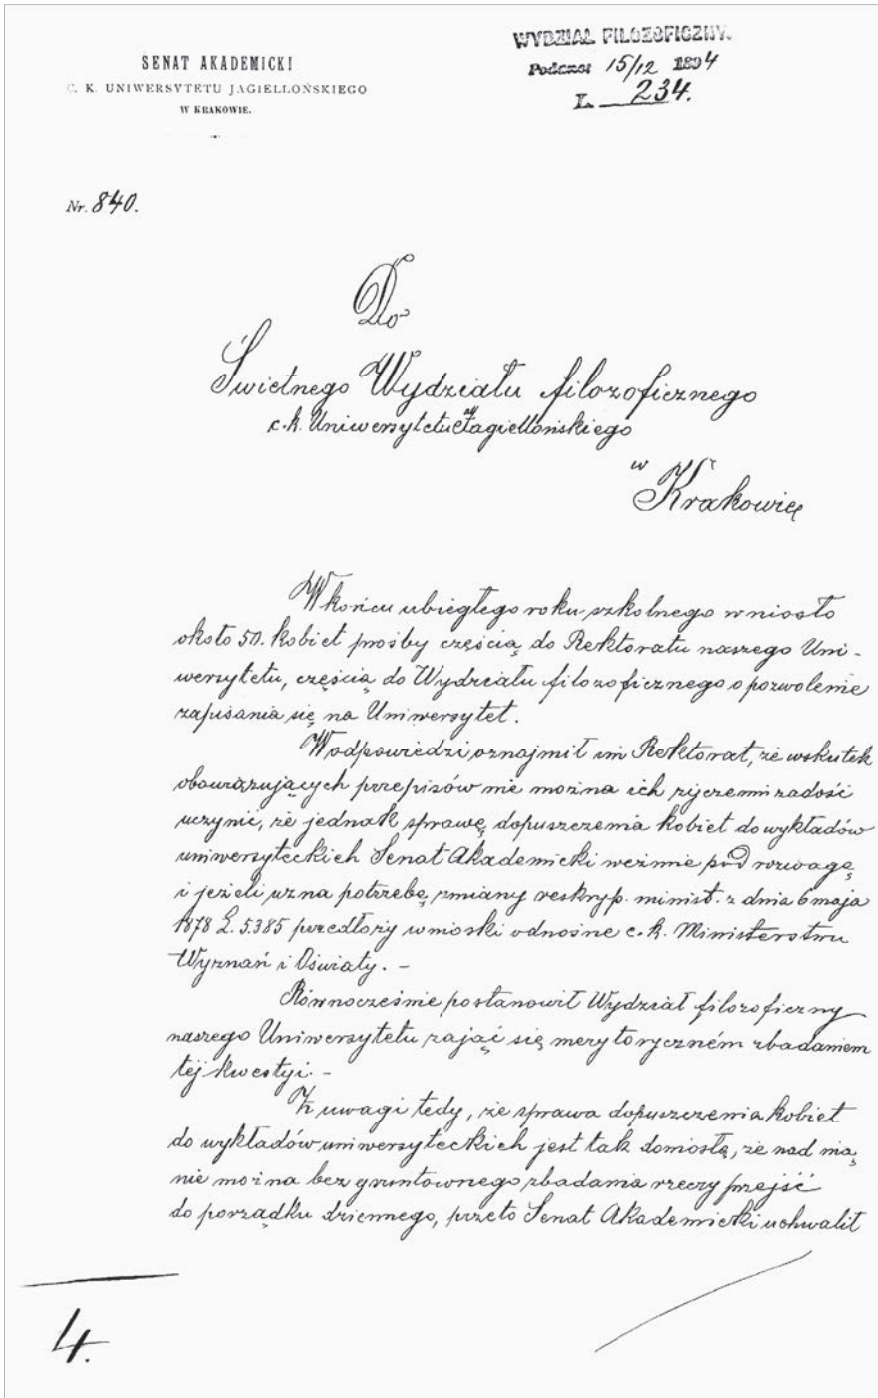 SENAT AKADEMICKI
C. K. UNIWERSYTETU JAGIELLOŃSKIEGO
W KRAKOWIE.
WYDZIAŁ FILOZOFICZNY.
Podczas 15/12 1894
L. 234.
Nr. 840.
Do
Świetnego Wydziału filozoficznego
c. k. Uniwersytetu Jagiellońskiego
w
Krakowie
W końcu ubiegłego roku szkolnego wniosło
około 50. kobiet prośby częścią do Rektoratu naszego Uni-
wersytetu, częścią do Wydziału filozoficznego o pozwolenie
zapisania się na Uniwersytet.
W odpowiedzi oznajmił im Rektorat, że wskutek
obowązujących przepisów nie można ich życzeniu zadość
uczynić, że jednak sprawę dopuszczenia kobiet do wykładów
uniwersyteckich Senat Akademicki weźmie pod rozwagę
i jeżeli uzna potrzebę zmiany reskryp. minist. z dnia 6 maja
1878 L. 5385 przedłoży wnioski odnośne c. k. Ministerstwu
Wyznań i Oświaty. –
Równocześnie postanowił Wydział filozoficzny
naszego Uniwersytetu zająć się merytoryczném zbadaniem
téj kwestyi. –
Z uwagi tedy, że sprawa dopuszczenia kobiet
do wykładów uniwersyteckich jest tak doniosłą, że nad nią
nie można bez gruntownego zbadania rzeczy przejść
do porządku dziennego, przeto Senat Akademicki uchwalił
4.